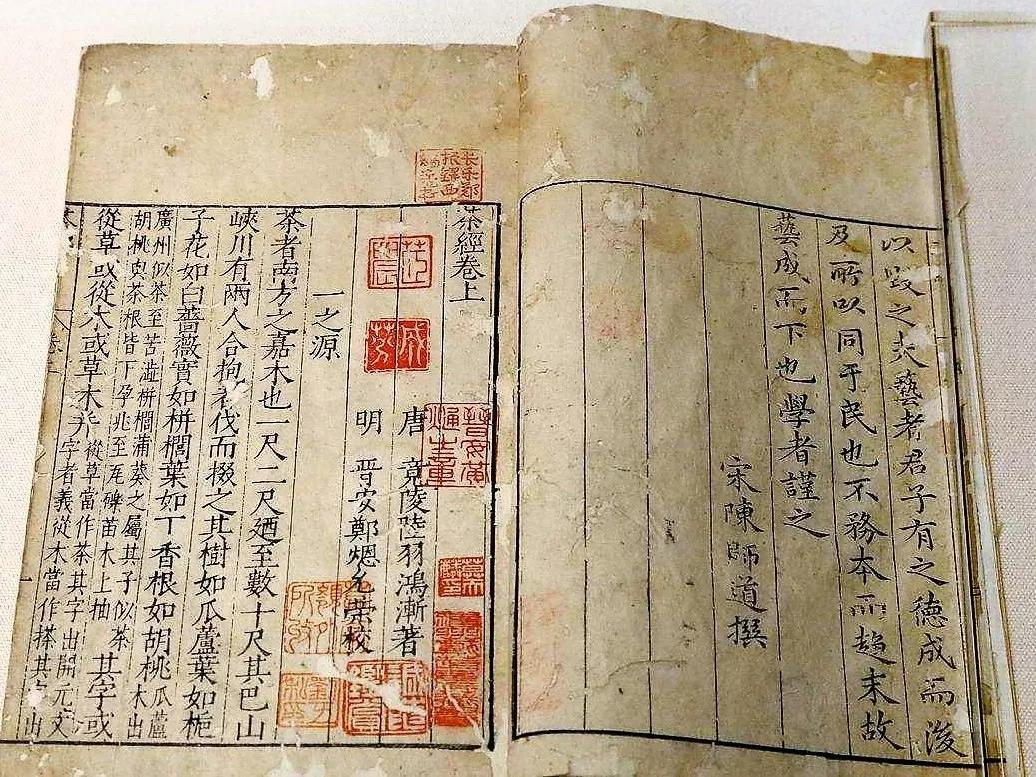 以毁之夫藝者君子有之德成而後
及所以同于民也不務本而趨末故
藝成而下也學者謹之
宋陳師道撰
茶經卷上
唐 竟陵陸羽鴻漸著
明 晉安鄭熜允榮校
一之源
茶者南方之嘉木也一尺二尺廼至數十尺其巴山
峽川有兩人合抱者伐而掇之其樹如瓜蘆葉如梔
子花如白薔薇實如栟櫚葉如丁香根如胡桃瓜蘆木出
廣州似茶至苦澁栟櫚蒲葵之屬其子似茶
胡桃與茶根皆下孕兆至瓦礫苗木上抽
其字或
從草或從木或草木并從草當作茶其字出開元文
字者義從木當作搽其字出